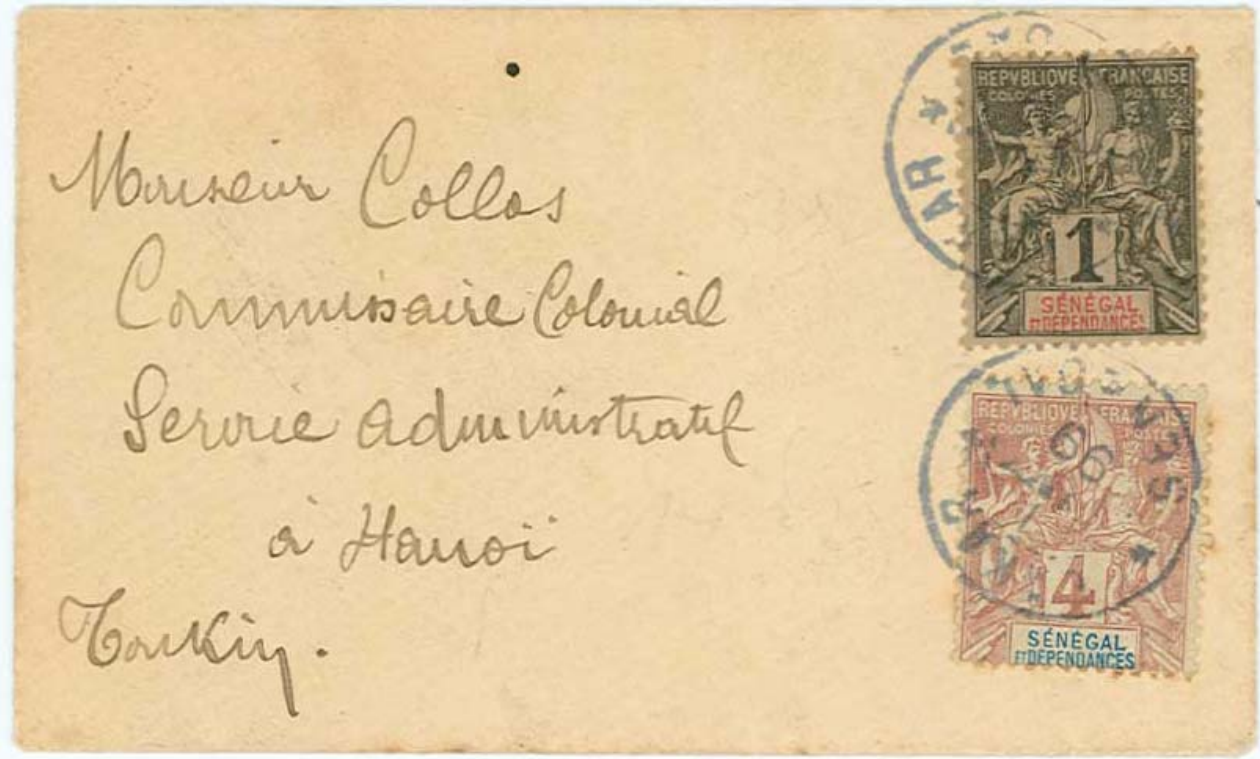 Monsieur Collas
Commissaire Colonial
Service administratif
à Hanoï
Tonkin.
REPVBLIQVE FRANCAISE
COLONIES POSTES
1
SÉNÉGAL
ET DÉPENDANCES
REPVBLIQVE FRANCAISE
COLONIES POSTES
4
SÉNÉGAL
ET DÉPENDANCES
SENEGAL